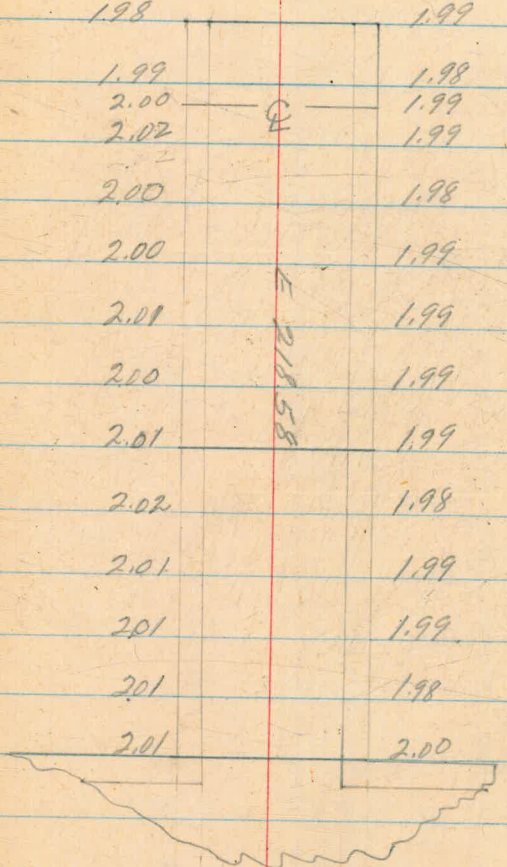 1.98 1.99
1.99 1.98
2.00 1.99
2.02 1.99
2.00 1.98
2.00 1.99
E 218.58
2.01 1.99
2.00 1.99
2.01 1.99
2.02 1.98
2.01 1.99
2.01 1.99
2.01 1.98
2.01 2.00